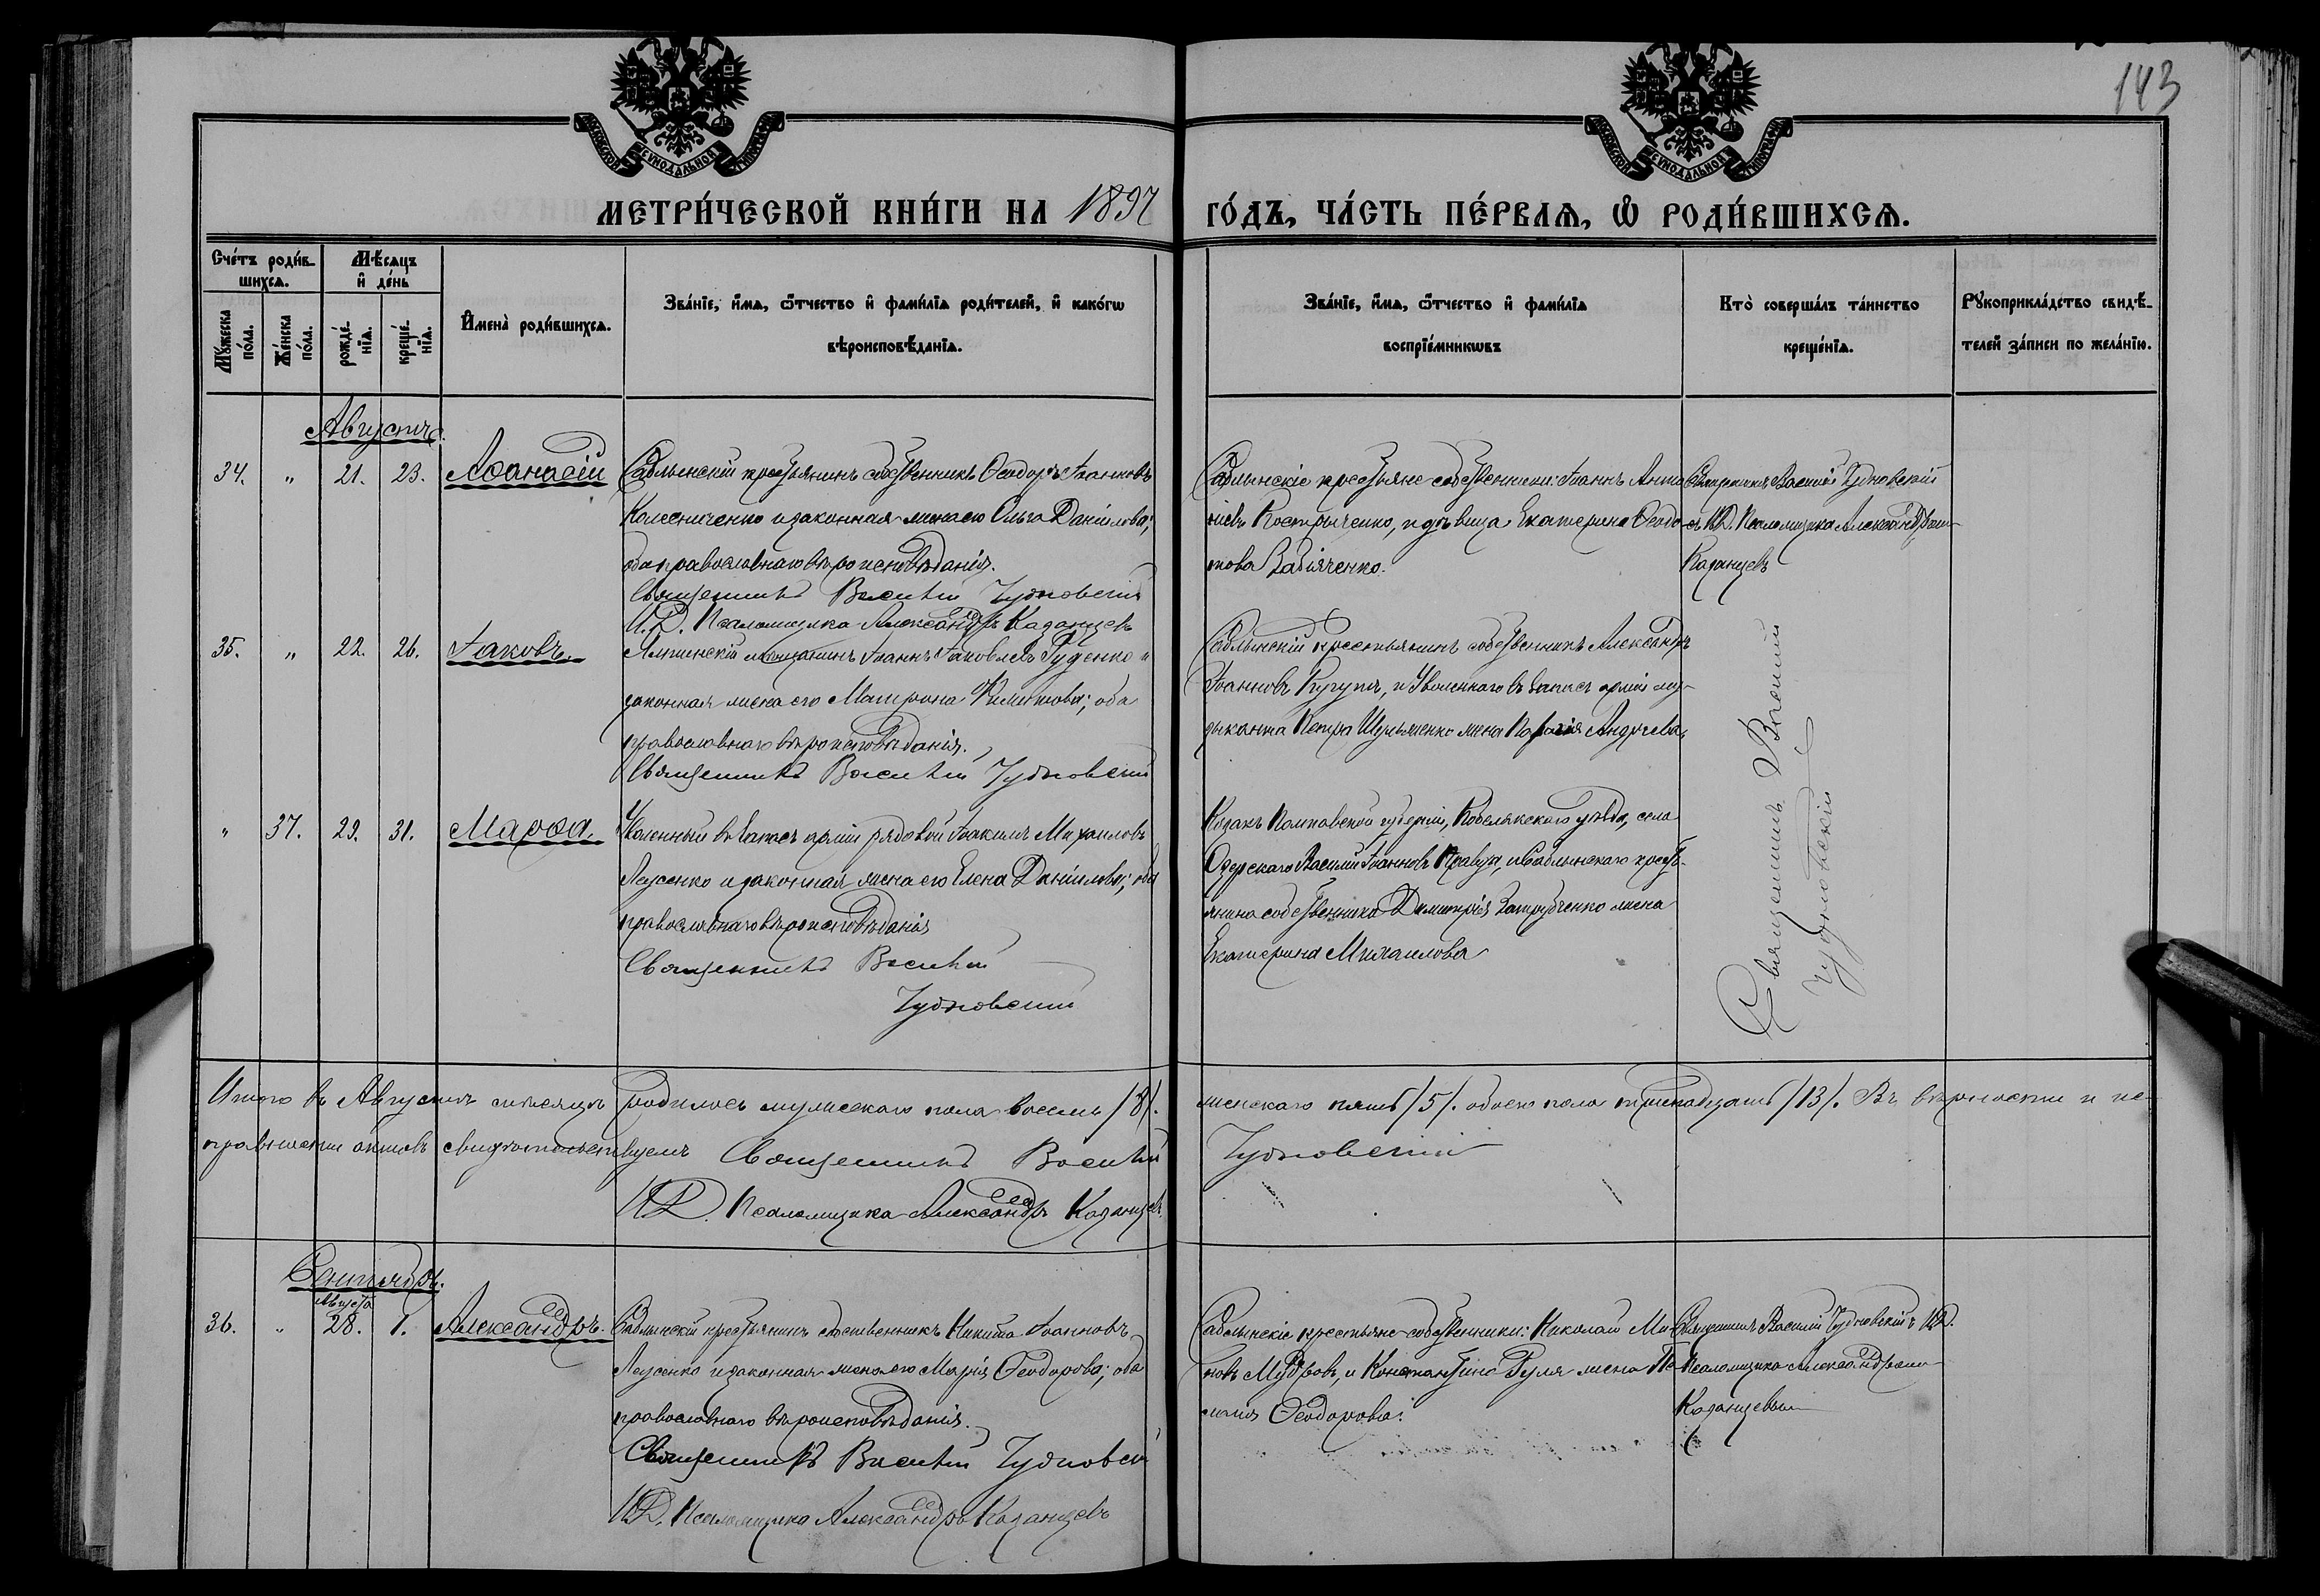 143
МОСКОВСКОЙ СУНОДАЛЬНОЙ ТИПОГРАФІИ
МОСКОВСКОЙ СУНОДАЛЬНОЙ ТИПОГРАФІИ
МЕТРИ́ЧЕСКОЙ КНИ́ГИ НА 1897 ГО́ДЪ, ЧА́СТЬ ПЕ́РВАѦ, Ѡ҆ РОДИ́ВШИХСѦ.
Счéтъ роди́в-
шихсѧ.
Мѣ́сѧцъ
и҆ дéнь
Мꙋ́жеска
по́ла.
Жéнска
по́ла.
рождé-
нїѧ.
крещé-
нїѧ.
И҆мена̀ роди́вшихсѧ.
Звáнїе, и҆́мѧ, ѻ҆́тчество и҆ фами́лїѧ роди́телей, и҆ какóгѡ
вѣроисповѣ́данїѧ.
Звáнїе, и҆́мѧ, ѻ҆́тчество и҆ фами́лїѧ
воспрїéмникѡвъ
Ктò совершáлъ тáинство
крещéнїѧ.
Рꙋкоприклáдство свидѣ́-
телей зáписи по желáнїю.
Августъ.
34. " 21. 23. Аѳанасій
Саблынскій крестьянинъ собственникъ Ѳеодоръ Іоанновъ
Колесниченко и законная жена его Ольга Даніилова;
оба православнаго вѣроисповѣданія.
Священникъ Василій Чудновскій
И. Д. Псаломщика Александръ Казанцевъ
Саблынскіе крестьяне собственники: Іоаннъ Анто
ніевъ Костыченко, и дѣвица Екатерина Ѳеодо
това Забіяченко.
Священникъ Василій Чудновскій
съ И.Д. Псаломщика Александромъ
Казанцевъ
35. " 22. 26. Іаковъ.
мѣщанинъ Іоаннъ Іаковлевъ Гуденко и
законная жена его Матрона Филиппова; оба
православнаго вѣроисповѣданія.
Священникъ Василій Чудновскій
Саблынскій крестьянинъ собственникъ Александръ
Іоанновъ Кугутъ, и Уволеннаго въ запасъ арміи му-
зыканта Петра Шульженко жена Параскева Андреева.
Священникъ Василій
Чудновскій
" 37. 29. 31. Марѳа.
Уволенный въ Запасъ арміи рядовой Іоакимъ Михаиловъ
Лысенко и законная жена его Елена Даніилова; оба
православнаго вѣроисповѣданія
Священникъ Василій
Чудновскій
Козакъ Полтавской губерніи, Кобелякскаго уѣзда, села
Озерскаго Василій Іоанновъ Кравуз, и Саблынскаго кресть-
янина собственника Димитрія Затрубченко жена
Екатерина Михаилова
Итого въ Августѣ мѣсяцѣ родилось мужескаго пола восемь /8/. женскаго пять /5/. обоего пола тринадцать /13/. Въ вѣрности и ис-
правности актовъ свидѣтельствуемъ Священникъ Василій Чудновскій
И.Д. Псаломщика Александръ Казанцевъ.
Сентябрь.
Августа
36. " 28. 1. Александръ.
Саблынскій крестьянинъ собственникъ Никита Іоанновъ
Лысенко и законная жена его Марія Ѳеодорова; оба
православнаго вѣроисповѣданія.
Священникъ Василій Чудновскій
И.Д. Псаломщика Александръ Казанцевъ
Саблынскіе крестьяне-собственники: Николай Ми-
новъ Мудровъ, и Константина Гуля жена Пе
лагія Ѳеодорова.
Священникъ Василій Чудновскій съ И.Д.
Псаломщика Александромъ
Казанцевымъ